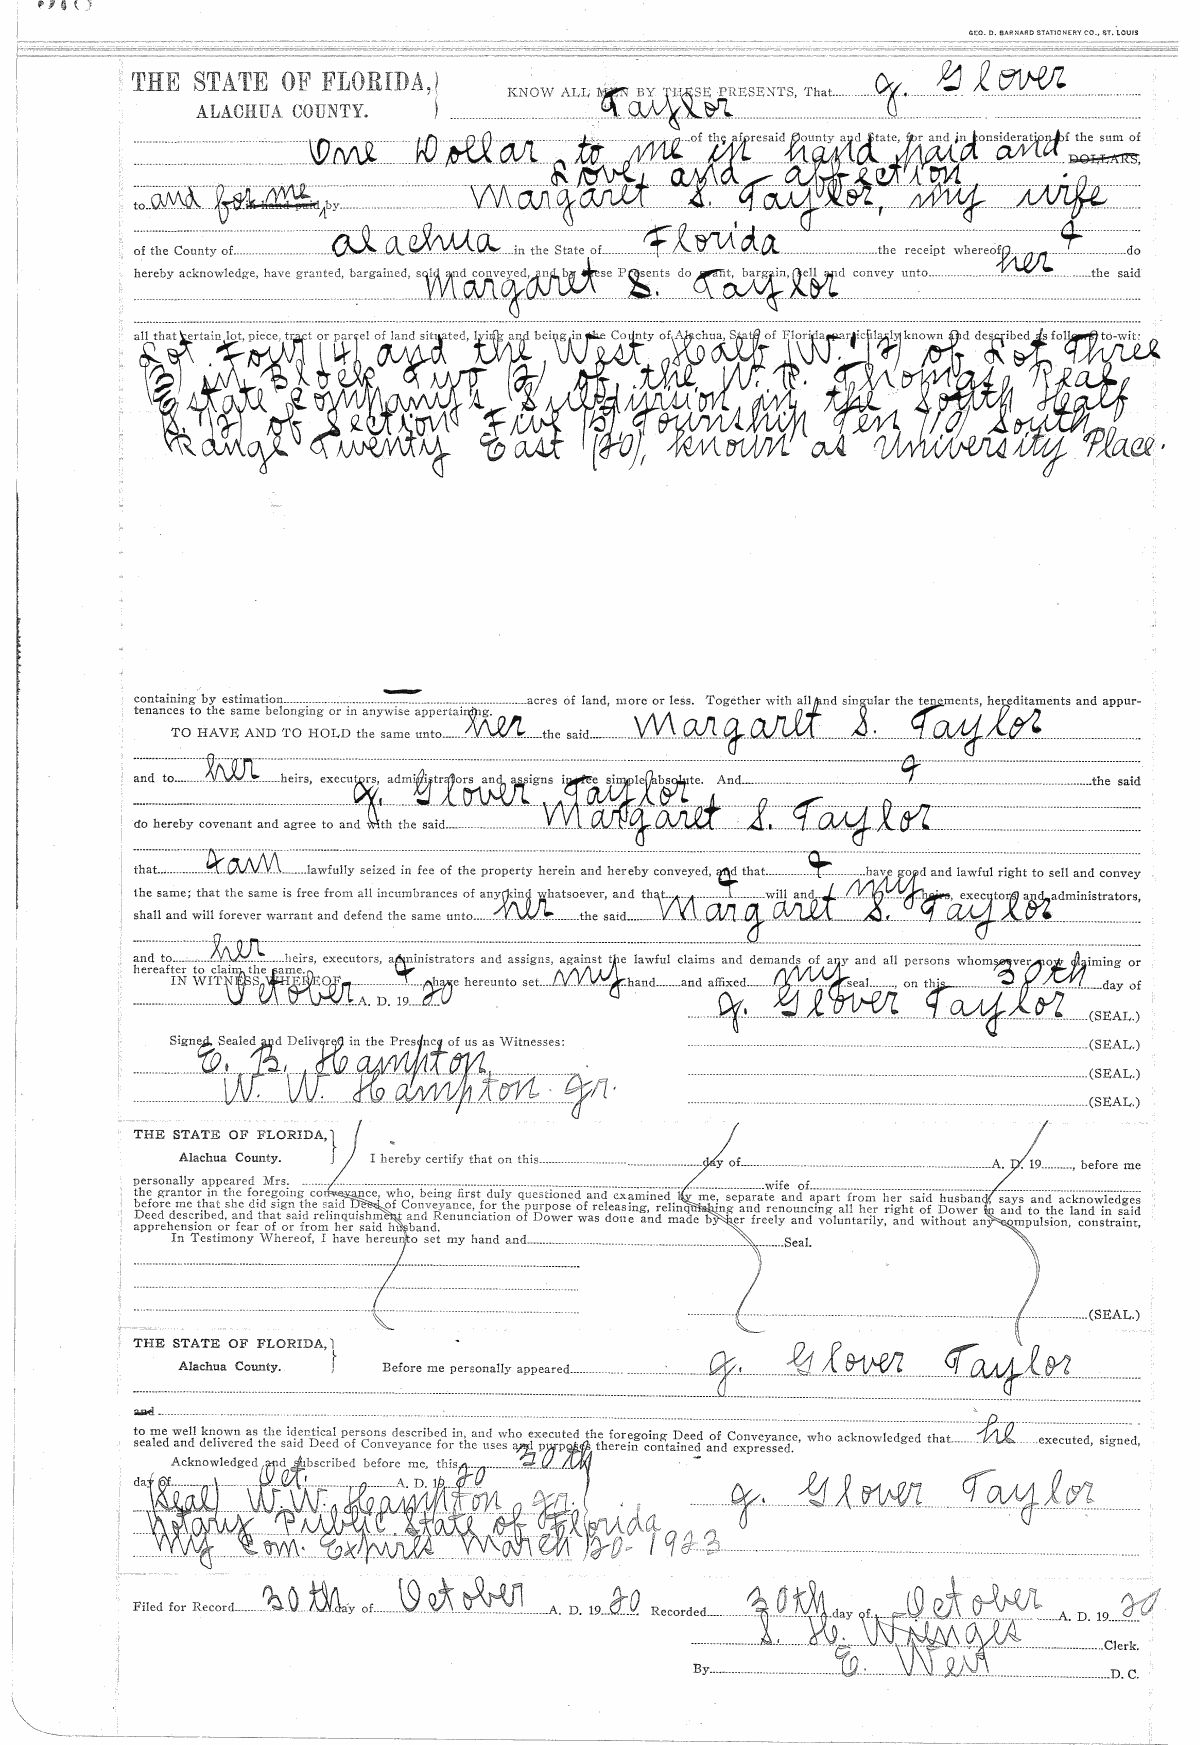 GEO. D. BARNARD STATIONERY CO., ST. LOUIS
THE STATE OF FLORIDA,
ALACHUA COUNTY.
KNOW ALL MEN BY THESE PRESENTS, That J. Glover
Taylor
of the aforesaid County and State, for and in consideration of the sum of
One Dollar to me in hand paid and DOLLARS,
Love and affection
to and for me by Margaret S. Taylor, my wife
of the County of Alachua in the State of Florida the receipt whereof I do
hereby acknowledge, have granted, bargained, sold and conveyed, and by these Presents do grant, bargain, sell and convey unto her the said
Margaret S. Taylor
all that certain lot, piece, tract or parcel of land situated, lying and being in the County of Alachua, State of Florida, particularly known and described as follows, to-wit:
Lot Four (4) and the West Half (W. 1/2) of Lot Three
(3) in Block Two (2) of the W. R. Thomas Real
Estate Company's Subdivision in the South Half
(S. 1/2) of Section Five (5) Township Ten (10) South
Range Twenty East (20), known as University Place.
containing by estimation — acres of land, more or less. Together with all and singular the tenements, hereditaments and appur-
tenances to the same belonging or in anywise appertaining.
TO HAVE AND TO HOLD the same unto her the said Margaret S. Taylor
and to her heirs, executors, administrators and assigns in fee simple absolute. And I the said
J. Glover Taylor
do hereby covenant and agree to and with the said Margaret S. Taylor
that I am lawfully seized in fee of the property herein and hereby conveyed, and that I have good and lawful right to sell and convey
the same; that the same is free from all incumbrances of any kind whatsoever, and that I will and my heirs, executors and administrators,
shall and will forever warrant and defend the same unto her the said Margaret S. Taylor
and to her heirs, executors, administrators and assigns, against the lawful claims and demands of any and all persons whomsoever now claiming or
hereafter to claim the same.
IN WITNESS WHEREOF, I have hereunto set my hand and affixed my seal, on this 30th day of
October A. D. 1920
J. Glover Taylor (SEAL.)
Signed, Sealed and Delivered in the Presence of us as Witnesses:
(SEAL.)
E. B. Hampton
(SEAL.)
W. W. Hampton Jr.
(SEAL.)
THE STATE OF FLORIDA,
Alachua County.
I hereby certify that on this day of A. D. 19 , before me
personally appeared Mrs. wife of
the grantor in the foregoing conveyance, who, being first duly questioned and examined by me, separate and apart from her said husband, says and acknowledges
before me that she did sign the said Deed of Conveyance, for the purpose of releasing, relinquishing and renouncing all her right of Dower in and to the land in said
Deed described, and that said relinquishment and Renunciation of Dower was done and made by her freely and voluntarily, and without any compulsion, constraint,
apprehension or fear of or from her said husband.
In Testimony Whereof, I have hereunto set my hand and Seal.
(SEAL.)
THE STATE OF FLORIDA,
Alachua County.
Before me personally appeared J. Glover Taylor
and
to me well known as the identical persons described in, and who executed the foregoing Deed of Conveyance, who acknowledged that he executed, signed,
sealed and delivered the said Deed of Conveyance for the uses and purposes therein contained and expressed.
Acknowledged and subscribed before me, this 30th
day of Oct. A. D. 1920
(Seal) W. W. Hampton Jr. J. Glover Taylor
Notary Public State of Florida
My Com. Expires March 20-1923
Filed for Record 30th day of October A. D. 1920 Recorded 30th day of October A. D. 1920
S. H. Wienges Clerk.
By E. Weil D. C.